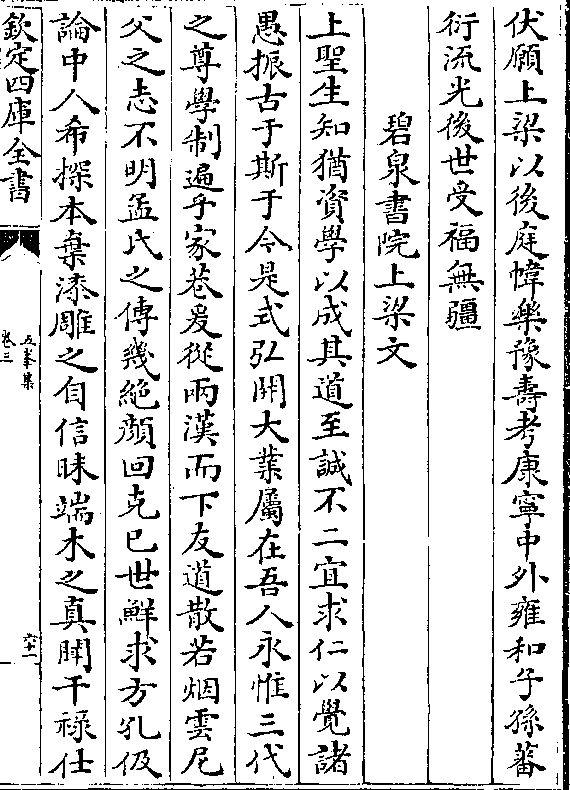 伏願上梁以後庭幃樂豫壽考康寧中外雍和子孫蕃
衍流光後世受福無疆
碧泉書院上梁文
上聖生知猶資學以成其道至誠不二宜求仁以覺諸
愚振古于斯于今是式弘開大業屬在吾人永惟三代
之尊學制遍乎家巷爰從兩漢而下友道散若烟雲尼
父之志不明孟氏之傳幾絶顔回克已世鮮求方孔伋
論中人希探本棄漆雕之自信昧端木之真聞干祿仕
欽定四庫全書
五峯集
卷三